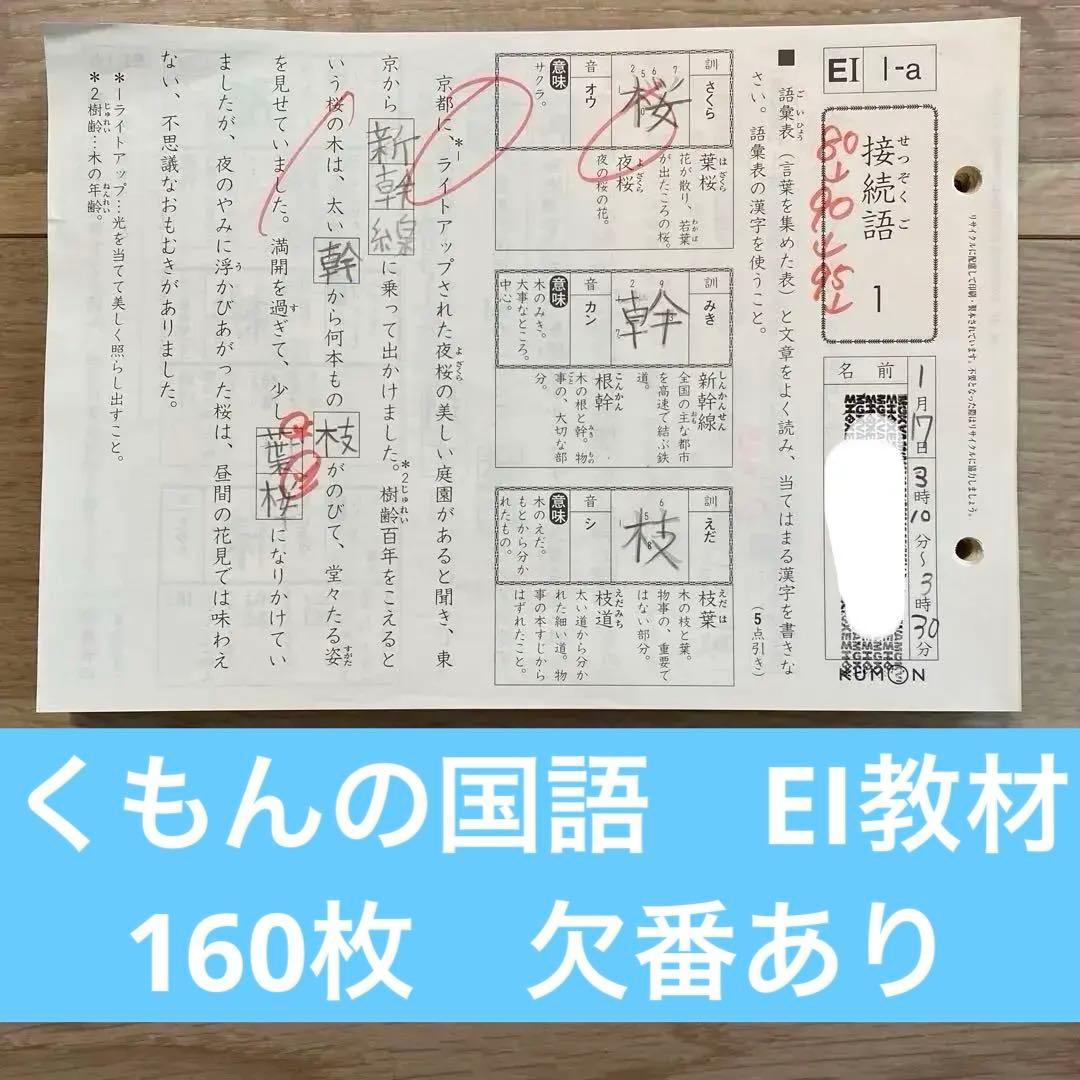 EI 1-a
接続語 1
せつぞくご
80↓
90↓
95↓
名前
1月17日 3時10分〜3時30分
KUMON
リサイクルに配慮して印刷・製本されています。不要となった際はリサイクルに協力しましょう。
■ 語彙表(言葉を集めた表)と文章をよく読み、当てはまる漢字を書きな
さい。語彙表の漢字を使うこと。
(5点引き)
訓 さくら
桜
音 オウ
意味 サクラ。
葉桜 はざくら
花が散り、若葉
が出たころの桜。
夜桜 よざくら
夜の桜の花。
訓 みき
幹
音 カン
意味 木のみき。
大事なところ。
中心。
新幹線 しんかんせん
全国の主な都市
を高速で結ぶ鉄
道。
根幹 こんかん
木の根と幹。物
事の、大切な部
分。
訓 えだ
枝
音 シ
意味 木のえだ。
もとから分か
れたもの。
枝葉 えだは
木の枝と葉。
物事の、重要で
はない部分。
枝道 えだみち
太い道から分か
れた細い道。物
事の本すじから
はずれたこと。
京都に、*1ライトアップされた夜桜の美しい庭園があると聞き、東
京から新幹線に乗って出かけました。*2樹齢百年をこえると
いう桜の木は、太い幹から何本もの枝がのびて、堂々たる姿
を見せていました。満開を過ぎて、少し葉桜になりかけてい
ましたが、夜のやみに浮かびあがった桜は、昼間の花見では味わえ
ない、不思議なおもむきがありました。
*1ライトアップ…光を当てて美しく照らし出すこと。
*2樹齢…木の年齢。
くもんの国語　EI教材
160枚　欠番あり